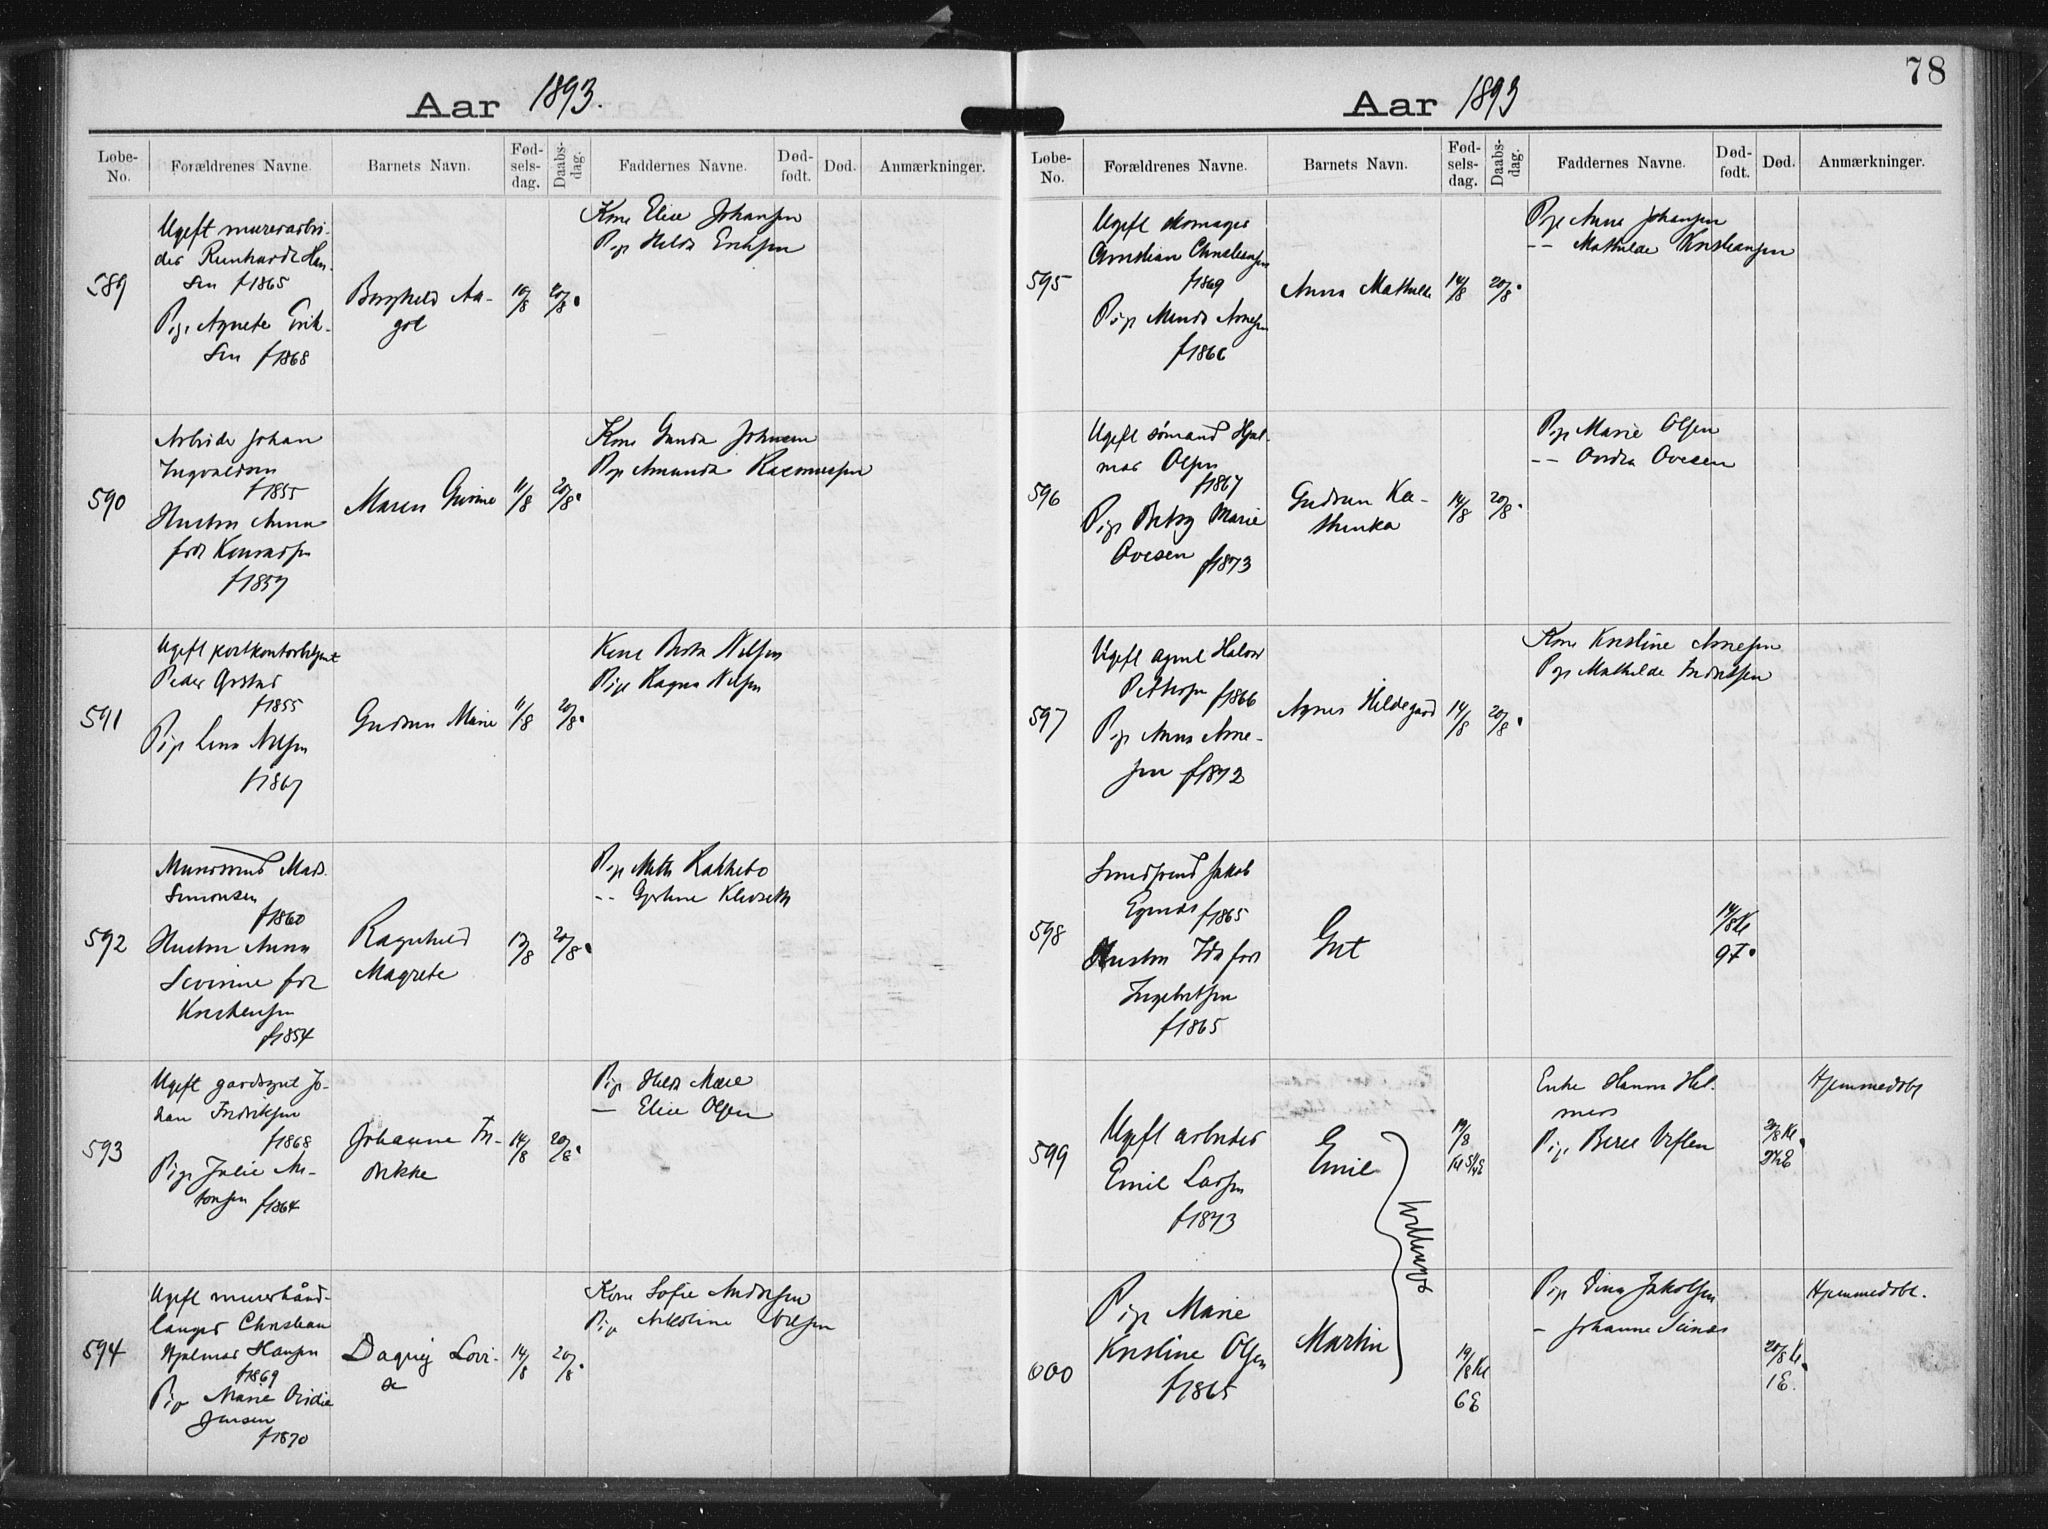 Aar 1893.
Løbe-No. Forældrenes Navne. Barnets Navn. Fød-sels-dag. Daabs-dag. Faddernes Navne. Død-født. Død. Anmærkninger.
589
Ugeft murerarbei-
der Reinhardt Han-
sen f1865
Pige Agnete Erik-
sen f1868
Borghild Aa-
got
10/8 20/8
Kone Elise Johansen
Pige Hilda Eriksen
590
Arbeider Johan
Ingvaldsen
f1855
Hustru Anna
født Konradsen
f1857
Maren Gurine
11/8 20/8
Kone Gunda Johnsen
Pige Amunda Rasmussen
591
Ugeft postkontorbetjent
Peder
f1855
Pige Lina Nilsen
f1867
Gudrun Marie
11/8 20/8
Kone Berta Nilsen
Pige Ragna Nilsen
592
Murersvend Mads
Simonsen
f1860
Hustru Anna
Severine født
Kristensen
f1854
Ragnhild
Magrete
13/8 20/8
Pige Mette Rakkebo
-- Gjertine
593
Ugeft gardsgut Jo-
han Fredriksen
f1868
Pige Julie An-
tonsen f1864
Johanne Fre-
drikke
14/8 20/8
Pige Hilda Moe
— Elise Olsen
594
Ugeft murerhånd-
langer Christian
Hjalmar Hansen
f1869
Pige Marie Ovidie
Jensen
f1870
Dagny Lovi-
se
14/8 20/8
Kone Sofie Andersen
Pige Nikoline Nilsen
78
Aar 1893
Løbe-No. Forældrenes Navne. Barnets Navn. Fød-sels-dag. Daabs-dag. Faddernes Navne. Død-født. Død. Anmærkninger.
595
Ugeft skomager
Christian Christiansen
f1869
Pige Minda Arnesen
f1866
Anna Mathilde
14/8 20/8
Pige Anna Johansen
-- Mathilde Kristiansen
596
Ugeft sømand Hjal-
mar Olsen
f1867
Pige Betzy Marie
Ovesen f1873
Gudrun Ka-
thinka
14/8 20/8
Pige Marie Olsen
-- Andrea Ovesen
597
Ugeft agent Halvor
Pettersen f1866
Pige Anna Arne-
sen f1872
Agnes Hildegard
14/8 20/8
Kone Kristine Arnesen
Pige Mathilde Indretsen
598
Smedsvend Jakob
Egenæs f1865
Hustru Ida født
Ingebretsen
f1865
Gut
14/8 Kl
9 F
599
Ugeft arbeider
Emil Larsen
f1873
Emil
Tvillinger
19/8
Kl 5¼ E
Enke Hanna Hel-
mers
Pige Berte Vestlen
20/8 Kl
Hjemmedøbt
600
Pige Marie
Kristine Olsen
f1865
Martin
19/8 Kl
6 E
Pige Dina Jakobsen
— Johanne
20/8 Kl
1 E.
Hjemmedøbt.